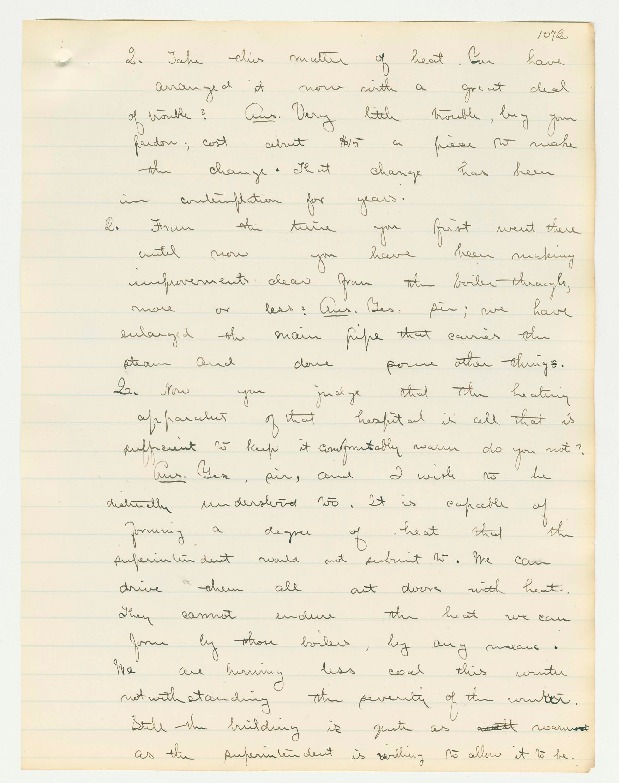 107½
Q. Take this matter of heat. You have
arranged it now with a great deal
of trouble? Ans. Very little trouble, beg your
pardon; cost about $15 a piece to make
the change. That change has been
in contemplation for years.
Q. From the time you first went there
until now you have been making
improvements clear from the boiler through,
more or less? Ans. Yes. sir; we have
enlarged the main pipe that carries the
steam and done some other things.
Q. Now you judge that the heating
apparatus of that hospital is all that is
sufficient to keep it comfortably warm do you not?
Ans. Yes, sir, and I wish to be
distinctly understood too. It is capable of
forming a degree of heat that the
superintendent would not submit to. We can
drive them all out doors with heat.
They cannot endure the heat we can
form by those boilers, by any means.
We are burning less coal this winter
notwithstanding the severity of the winter.
Still the building is quite as warm
as the superintendent is willing to allow it to be.